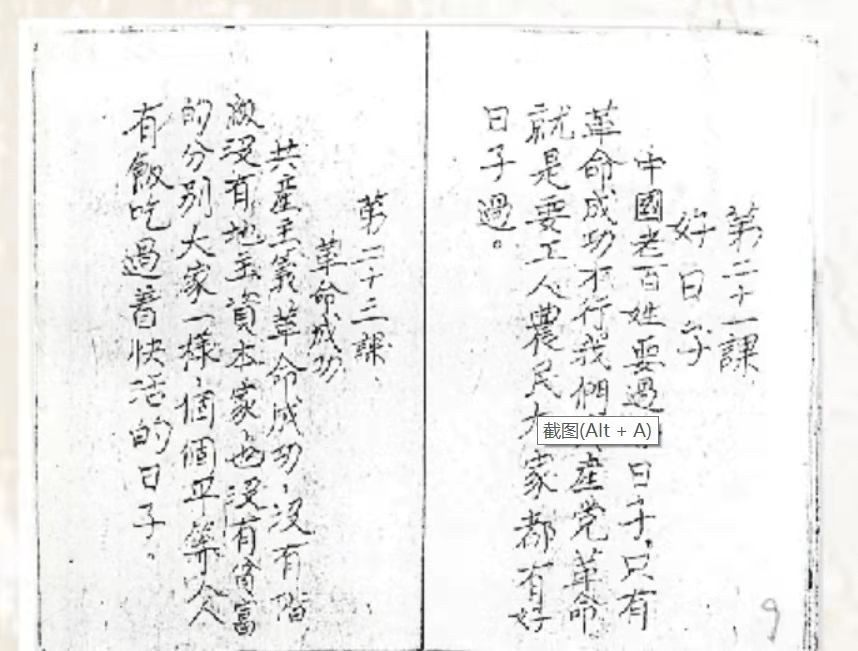 第二十一課.
好日子
中國老百姓要過日子,只有
革命成功才行我們産党革命
就是要工人農民大家都有好
日子過。
第二十三課.
革命成功
共産主義革命成功,沒有階
級沒有地主資本家也沒有貧富
的分別大家一樣,個個平等人人
有飯吃過着快活的日子。
9
截图(Alt + A)